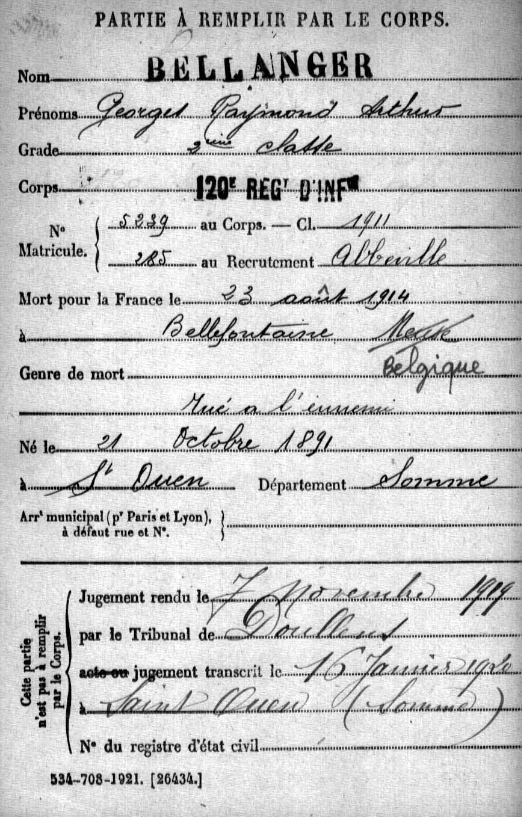 PARTIE À REMPLIR PAR LE CORPS.
Nom BELLANGER
Prénoms Georges Raymond Arthur
Grade 2ème classe
Corps 120E REGT D'INFIE
N° Matricule. { 5239 au Corps. — Cl. 1911
285 au Recrutement Abbeville
Mort pour la France le 23 août 1914
à Bellefontaine Meuse
Belgique
Genre de mort
Tué a l'ennemi
Né le 21 Octobre 1891
à St Ouen Département Somme
Arrt municipal (pr Paris et Lyon),
à défaut rue et N°.
Cette partie n'est pas à remplir par le Corps.
Jugement rendu le 7 Novembre 1919
par le Tribunal de Doullens
acte ou jugement transcrit le 16 Janvier 1920
à Saint Ouen (Somme)
N° du registre d'état civil
534-708-1921. [26434.]